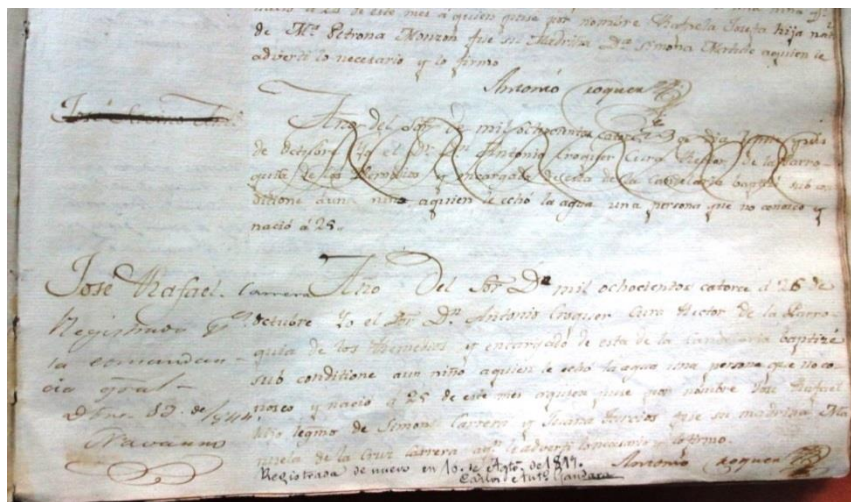 nació á 25 de este mes á quien puse por nombre Rafaela Josefa hija nat
de Mª Petrona Monzon fue su Madrina Dª Simona Matute aquien le
adverti lo necesario y lo firmo
Antonio Croquer
Año del Sor de mil ochocientos catorce
de octubre Yo el Sor Dn Antonio Croquer Cura Rector de la Parro-
quia de los Remedios y encargado de esta de la Candelaria baptizé sub co-
ditione á un niño aquien le echó la agua una persona que no conosco y
nació á 25.
José Rafael. Carrera
Año Del Sor Dn mil ochocientos catorce á 26 de
Registrado pr octubre Yo el Sor Dn Antonio Croquer Cura Rector de la Parro-
la comandan- quia de los Remedios y encargado de esta de la Candelaria baptizé
cia gral- sub conditione a un niño aquien le echó la agua una persona que no co-
D Ene. 19. de 1844 nosco y nació á 25 de este mes aquien puse por nombre José Rafael
Navarro hijo legmo de Simon Carrera y Juana Turcios fue su madrina Ma
nuela de la Cruz Carrera aqn le adverti lo necesario y lo firmo.
Registrada de nuevo en 10 de Agto. de 1897. Antonio Croquer
Carlos Antº